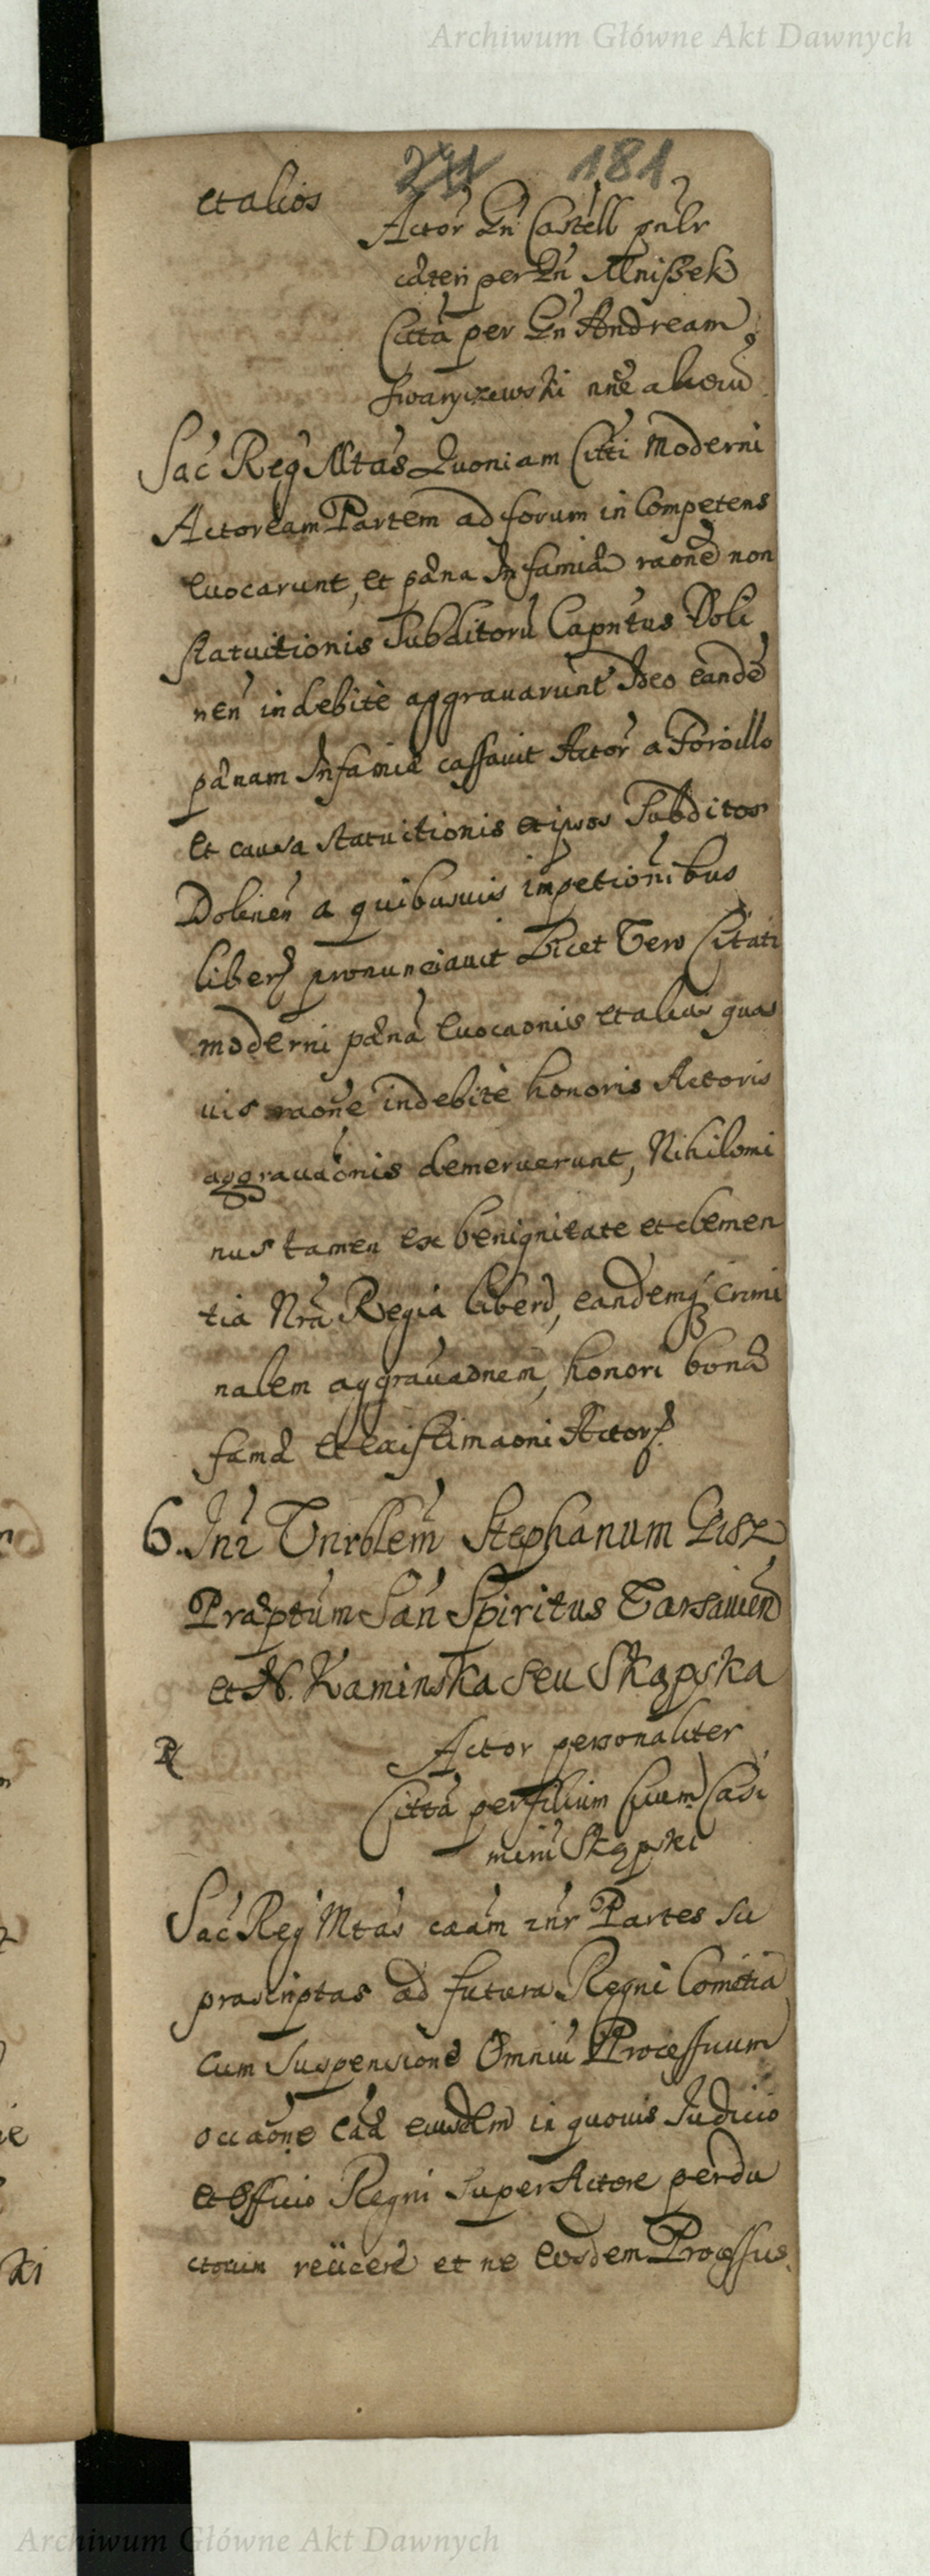 Archiwum Główne Akt Dawnych
181
et alios
Actor Gn Castell pnlr
cæteri per Gn Mniszek
Citta per Gn Andream
Swaryczewski nne alioru
Sac Reg Mtas Quoniam Citti Moderni
Actoream Partem ad forum in Competens
Evocarunt, et pæna Infamiæ raone non
statuitionis Subditoru Capntus Doli
nen indebite aggrauarunt Ideo eande
pænam Infamiæ cassauit Actor a Foro illo
et causa statuitionis et ipsos Subditos
Dolinen a quibusuis impetionibus
liber pronunciauit Licet Vero Citati
moderni pæna Euocaonis et alias quas
uis raone indebite honoris Actoris
aggrauaonis demeruerunt, Nihilomi
nus tamen ex benignitate et clemen
tia Nra Regia liberd, eandemq crimi
nalem aggrauaonem, honori bonæ
famæ et existimaoni Actor
6. Inr Vnrblem Stephanum Lisz
Præptum San Spiritus Varsauien
et N. Kaminska seu Skąpska
Actor personaliter
Citta per filium suum Casi
miru Skąpski
Sac Reg Mtas caam inr Partes su
prascriptas ad futura Regni Comitia
cum Suspensione Omniu Processuum
occaone Caæ eiusdem in quouis Iudicio
et Officio Regni super Actore perdu
ctorum reiicere et ne Eosdem Processus
Archiwum Główne Akt Dawnych